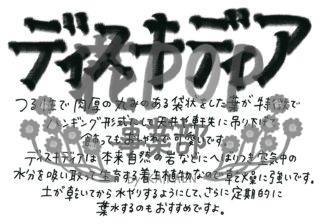 ディスキディア
花POP
倶楽部
つる性で肉厚の丸みのある袋状をした葉が特徴で
ハンギング形式にして天井や軒先に吊り下げて
飾ってもおしゃれで可愛いです
ディスキディアは本来自然の岩などにへばりつき空気中の
水分を吸い取って生育する着生植物なので乾燥に強いです。
土が乾いてから水やりするようにして、さらに定期的に
葉水するのもおすすめですよ。